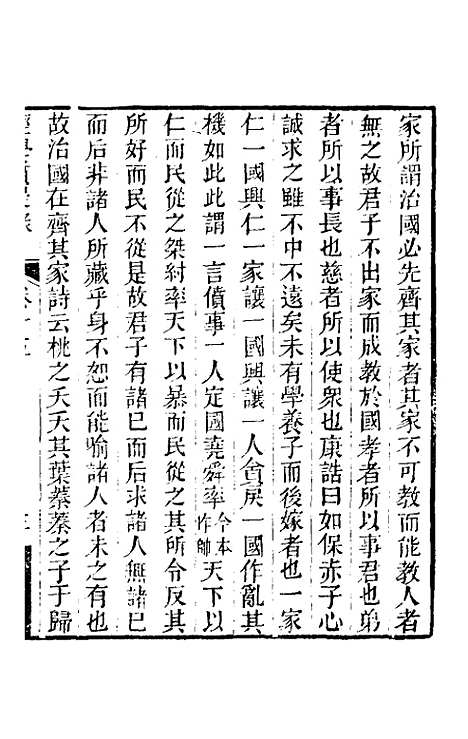 家所謂治國必先齊其家者其家不可教而能教人者
無之故君子不出家而成教於國孝者所以事君也弟
者所以事長也慈者所以使衆也康誥曰如保赤子心
誠求之雖不中不遠矣未有學養子而後嫁者也一家
仁一國興仁一家讓一國興讓一人貪戾一國作亂其
機如此此謂一言僨事一人定國堯舜率今本作帥天下以
仁而民從之桀紂率天下以暴而民從之其所令反其
所好而民不從是故君子有諸已而后求諸人無諸已
而后非諸人所藏乎身不恕而能喻諸人者未之有也
故治國在齊其家詩云桃之夭夭其葉蓁蓁之子于歸
卷十五